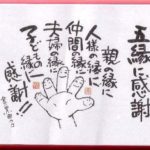 五縁に感謝
親の縁に
人様の縁に
仲間の縁に
夫婦の縁に
子どもの縁に
感謝!!